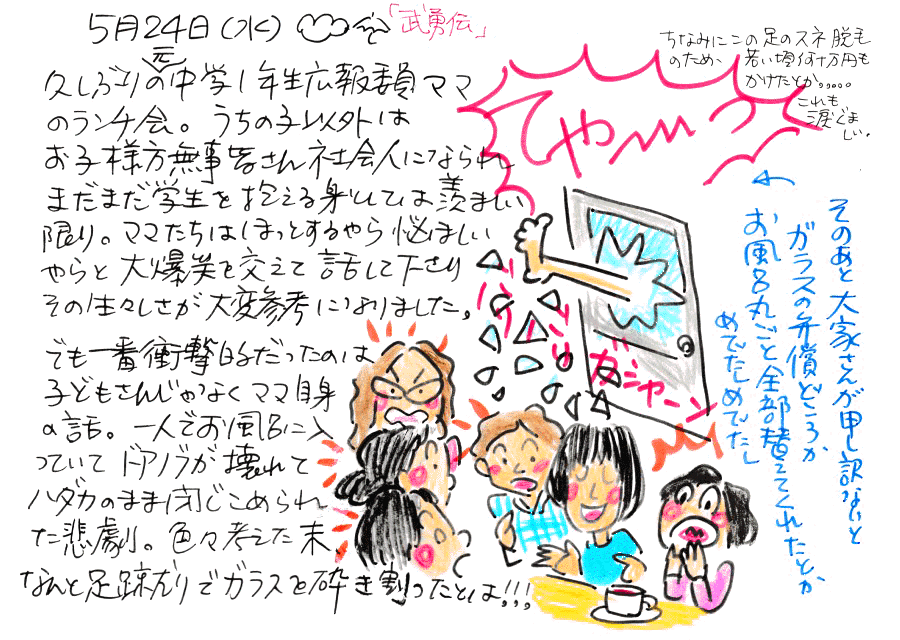 5月24日(水)
「武勇伝」
久しぶりの元中学1年生広報委員ママ
のランチ会。うちの子以外は
お子様方無事皆さん社会人になられ
まだまだ学生を抱える身としては羨ましい
限り。ママたちはほっとするやら悩ましい
やらと大爆笑を交えて話して下さり
その生々しさが大変参考になりました。
でも一番衝撃的だったのは
子どもさんじゃなくママ自身
の話。一人でお風呂に入
っていてドアノブが壊れて
ハダカのまま閉じこめられ
た悲劇。色々考えた末、
なんと足蹴りでガラスを砕き割ったとは!!!
ちなみにこの足のスネ脱毛
のため、若い頃何十万円も
かけたとか、、、、、
これも
涙ぐまし
い。
てや〜っ
バリバリ
ガシャーン
そのあと大家さんが申し訳ないと
ガラスの弁償どころか
お風呂丸ごと全部替えてくれたとか
めでたしめでたし